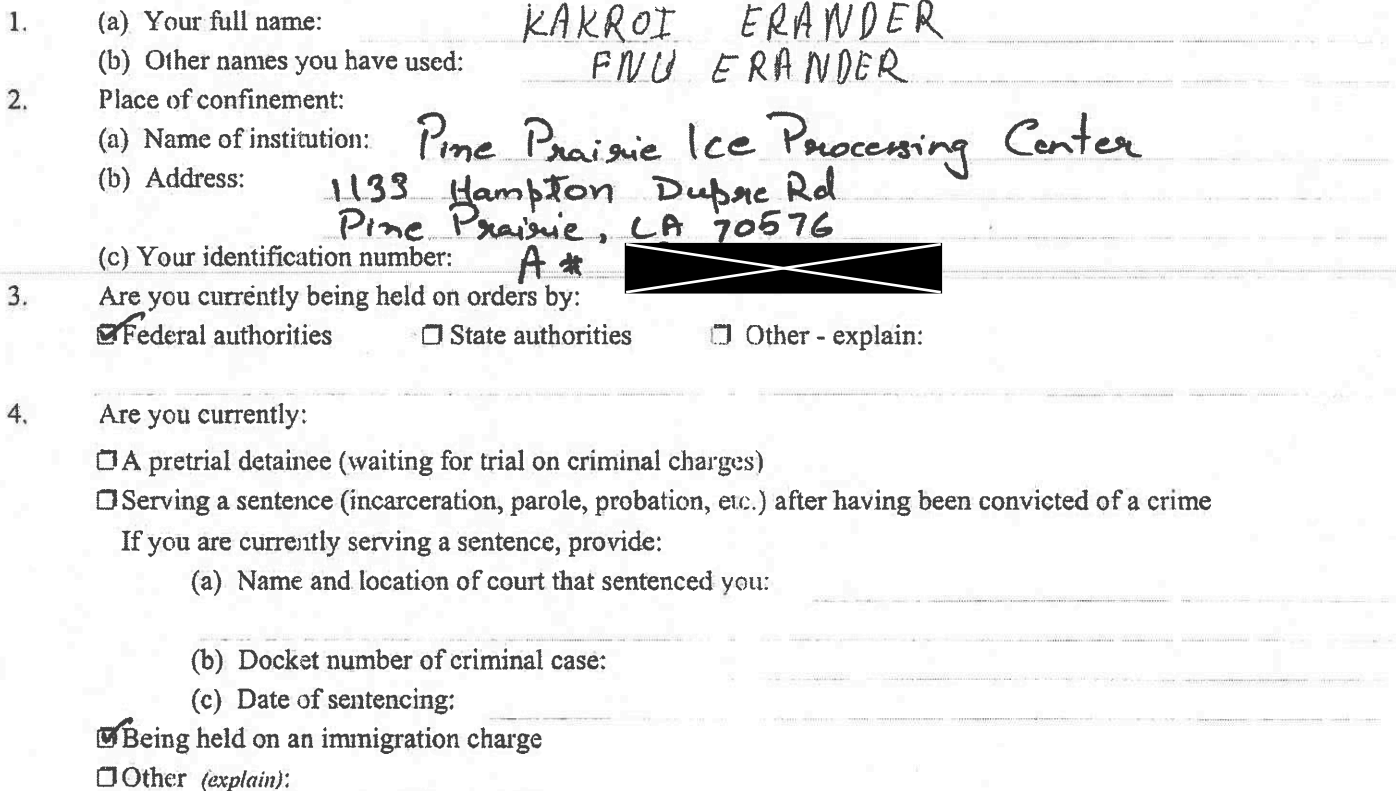 1. (a) Your full name: KAKROI ERANDER
(b) Other names you have used: FNU ERANDER
2. Place of confinement:
(a) Name of institution: Pine Prairie Ice Processing Center
(b) Address: 1133 Hampton Dupre Rd
Pine Prairie, LA 70576
(c) Your identification number: A #
3. Are you currently being held on orders by:
☑ Federal authorities ☐ State authorities ☐ Other - explain:
4. Are you currently:
☐ A pretrial detainee (waiting for trial on criminal charges)
☐ Serving a sentence (incarceration, parole, probation, etc.) after having been convicted of a crime
If you are currently serving a sentence, provide:
(a) Name and location of court that sentenced you:
(b) Docket number of criminal case:
(c) Date of sentencing:
☑ Being held on an immigration charge
☐ Other (explain):